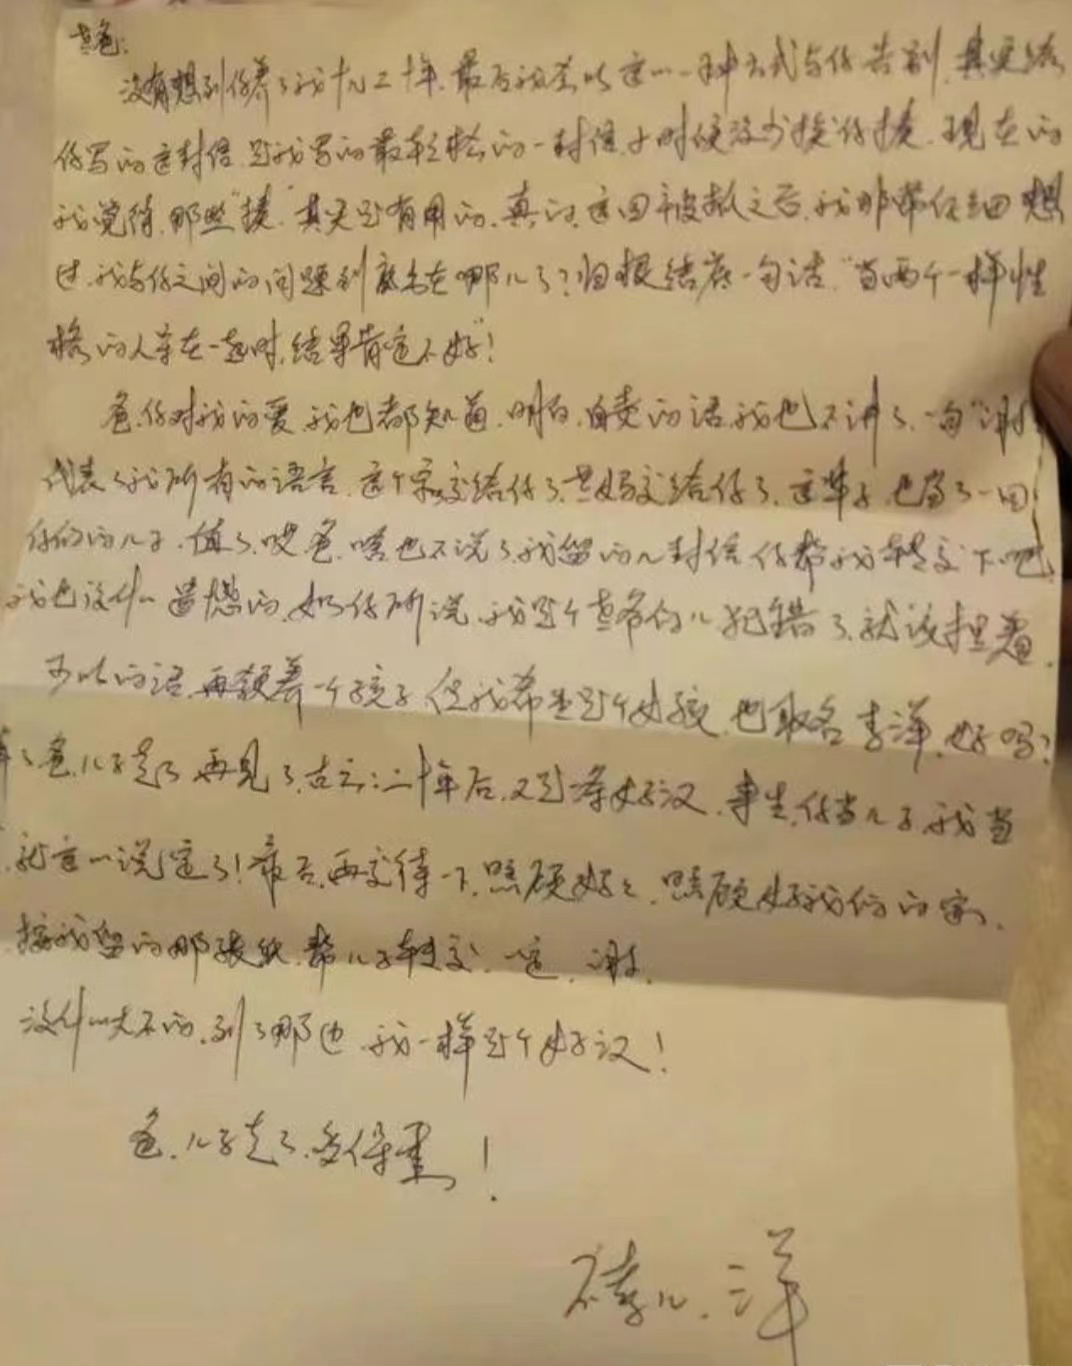 老爸:
没有想到你养了我十几二十年,最后我会以这么一种方式与你告别,其实给
你写的这封信,是我写的最轻松的一封信,小时候没少挨你揍,现在的
我觉得,那些"揍"其实是有用的,真的,这回被抓之后,我非常仔细回想
过,我与你之间的问题到底出在哪儿了?归根结底一句话,"当两个一样性
格的人全在一起时,结果肯定不好"!
爸,你对我的爱,我也都知道,明白,自责的话,我也不讲了,一句"谢
代表了我所有的语言,这个家交给你了,老妈交给你了,这辈子,也当了一回
你们的儿子,值了,哎,爸,啥也不说了,我留的几封信,你帮我转交下吧,
我也没什么遗憾的,如你所说,我是个爷们儿,犯错了,就该担着,
可以的话,再领养一个孩子,但我希望是个女孩,也取名李洋,好吗?
爸,儿子走了,再见了,古云:二十年后,又是一条好汉,来生,你当儿子,我当
,就这么说定了!最后,再交待一下,照顾好,照顾好我们的家,
按我留的那张纸,帮儿子转交,一定,谢谢,
没什么大不的,到了那边,我一样是个好汉!
爸,儿子走了,多保重!
不孝儿,三洋